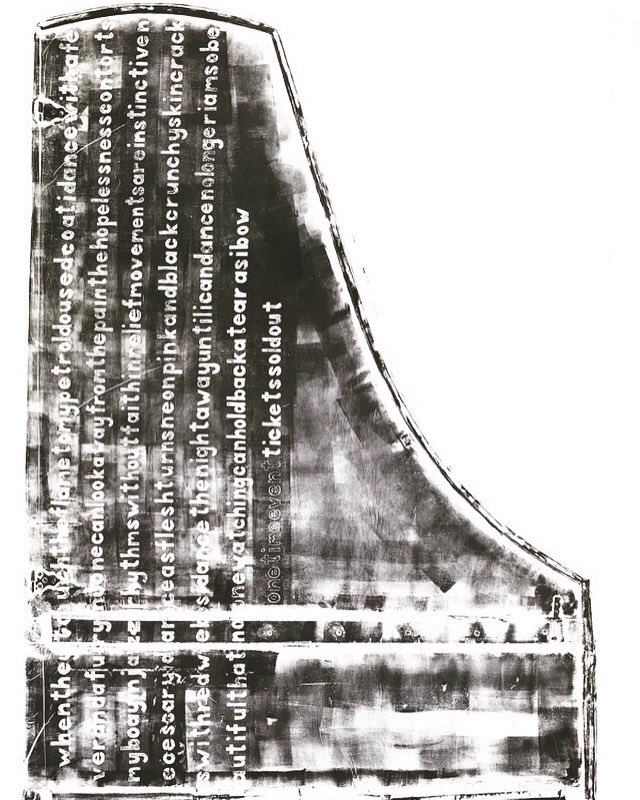 whenthe ughttheflametomypetroldousedcoatidancewithafe
verandafury noonecanlookawayfromthepainthehopelessnesscontorts
mybodyinja rhythmswithoutfaithinreliefmovementsareinstinctiven
ecessarydanceasfleshturnsneonpinkandblackcrunchyskincrack
swithredwe sidancethenightawayuntilicandancenolongeriamsobe
autifulthatnoonewatchingcanholdbackatearasibow
onetimeevent ticketssoldout